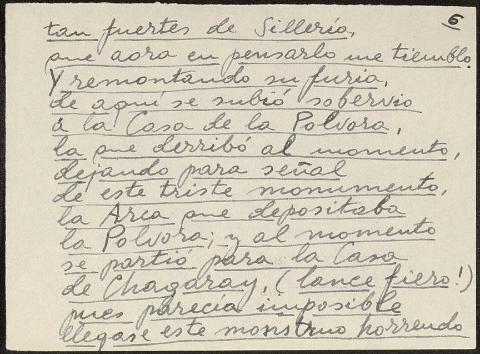 6
tan fuertes de Sillería,
que aora en pensarlo me tiemblo.
Y remontando su furia,
de aquí se subió sobervio
á la Casa de la Polvora,
la que derribó al momento,
dejando para señal
de este triste monumento,
la Arca que depositaba
la Polvora; y al momento
se partió para la Casa
de Chagaray, (lance fiero!)
pues parecía imposible
llegase este monstruo horrendo